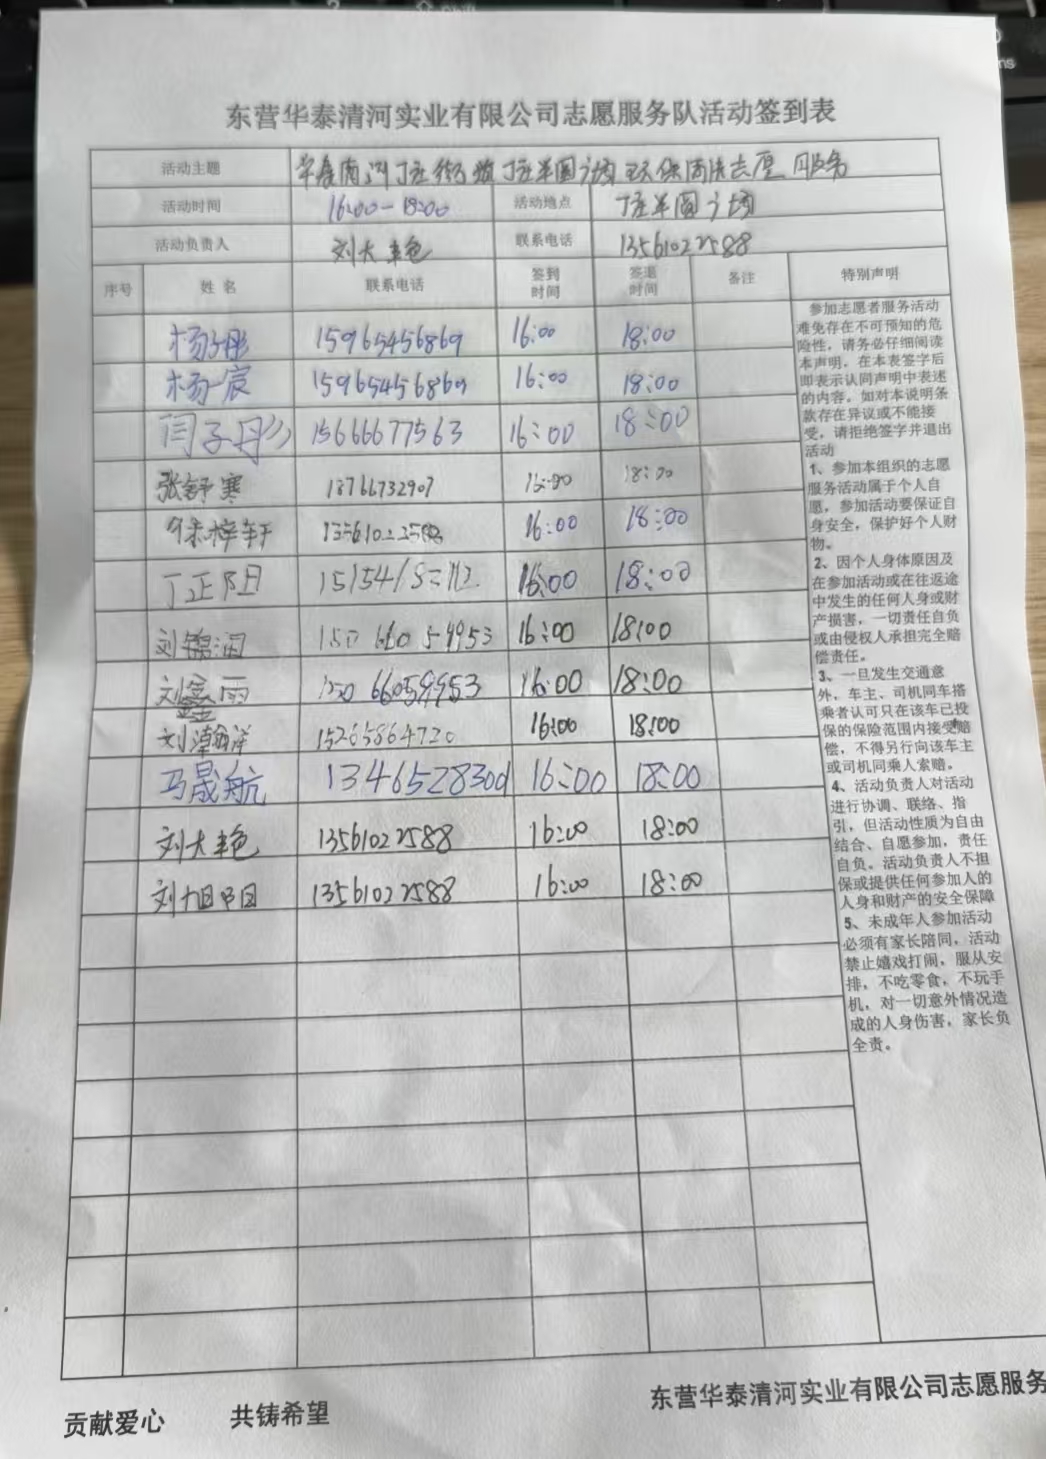 东营华泰清河实业有限公司志愿服务队活动签到表
活动主题 华泰清河丁庄街道丁庄羊圈广场环保清洁志愿服务
活动时间 16:00-18:00 活动地点 丁庄羊圈广场
活动负责人 刘大艳 联系电话 13561022588
序号 姓名 联系电话 签到时间 签退时间 备注 特别声明
杨子彤 15965456869 16:00 18:00
杨一宸 15965456869 16:00 18:00
闫子彤 15666677563 16:00 18:00
张舒寒 18766732907 16:00 18:00
梓轩 16:00 18:00
丁正阳 16:00 18:00
刘锦润 150 660 54953 16:00 18:00
刘鑫雨 150 66054953 16:00 18:00
刘瀚洋 15265864720 16:00 18:00
马晟航 13465283001 16:00 18:00
刘大艳 13561022588 16:00 18:00
刘旭阳 13561022588 16:00 18:00
参加志愿者服务活动
难免存在不可预知的危
险性，请务必仔细阅读
本声明，在本表签字后
即表示认同声明中表述
的内容。如对本说明条
款存在异议或不能接
受，请拒绝签字并退出
活动
1、参加本组织的志愿
服务活动属于个人自
愿，参加活动要保证自
身安全，保护好个人财
物。
2、因个人身体原因及
在参加活动或在往返途
中发生的任何人身或财
产损害，一切责任自负
或由侵权人承担完全赔
偿责任。
3、一旦发生交通意
外，车主、司机同车搭
乘者认可只在该车已投
保的保险范围内接受赔
偿，不得另行向该车主
或司机同乘人索赔。
4、活动负责人对活动
进行协调、联络、指
引，但活动性质为自由
结合、自愿参加，责任
自负。活动负责人不担
保或提供任何参加人的
人身和财产的安全保障
5、未成年人参加活动
必须有家长陪同，活动
禁止嬉戏打闹，服从安
排，不吃零食，不玩手
机，对一切意外情况造
成的人身伤害，家长负
全责。
贡献爱心 共铸希望 东营华泰清河实业有限公司志愿服务